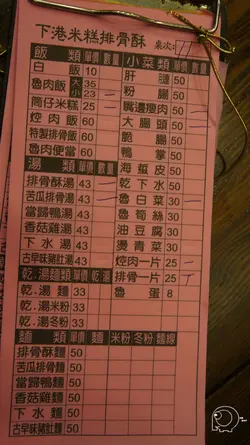 下港米糕排骨酥 桌次: 11
飯類 單價 數量 小菜類 單價 數量
白飯 10 肝膉 50
魯肉飯 大 35 粉腸 50
小 23 嘴邊瘦肉 50
筒仔米糕 25 大腸頭 50
焢肉飯 60 脆腸 50
特製排骨飯 60 鴨掌 50
魯肉便當 60 海蜇皮 50
湯類 單價 數量 乾下水 50
排骨酥湯 43 魯白菜 30
苦瓜排骨湯 43 魯筍絲 30
當歸鴨湯 60 油豆腐 30
香菇雞湯 60 燙青菜 30
下水湯 50 焢肉一片 25
古早味豬肚湯 50 排骨一片 25
乾.湯麵類 單價 乾 湯 魯蛋 8
乾.湯麵 33
乾.湯米粉 33
乾.湯冬粉 33
麵類 單價 麵 米粉 冬粉 麵線
排骨酥麵 50
苦瓜排骨麵 50
當歸鴨麵 60
香菇雞麵 60
下水麵 60
古早味豬肚麵 60